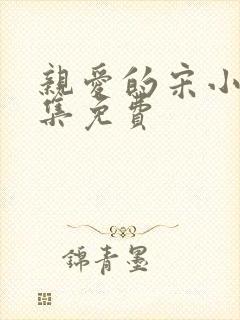 親愛的宋小
集免費
錦青墨